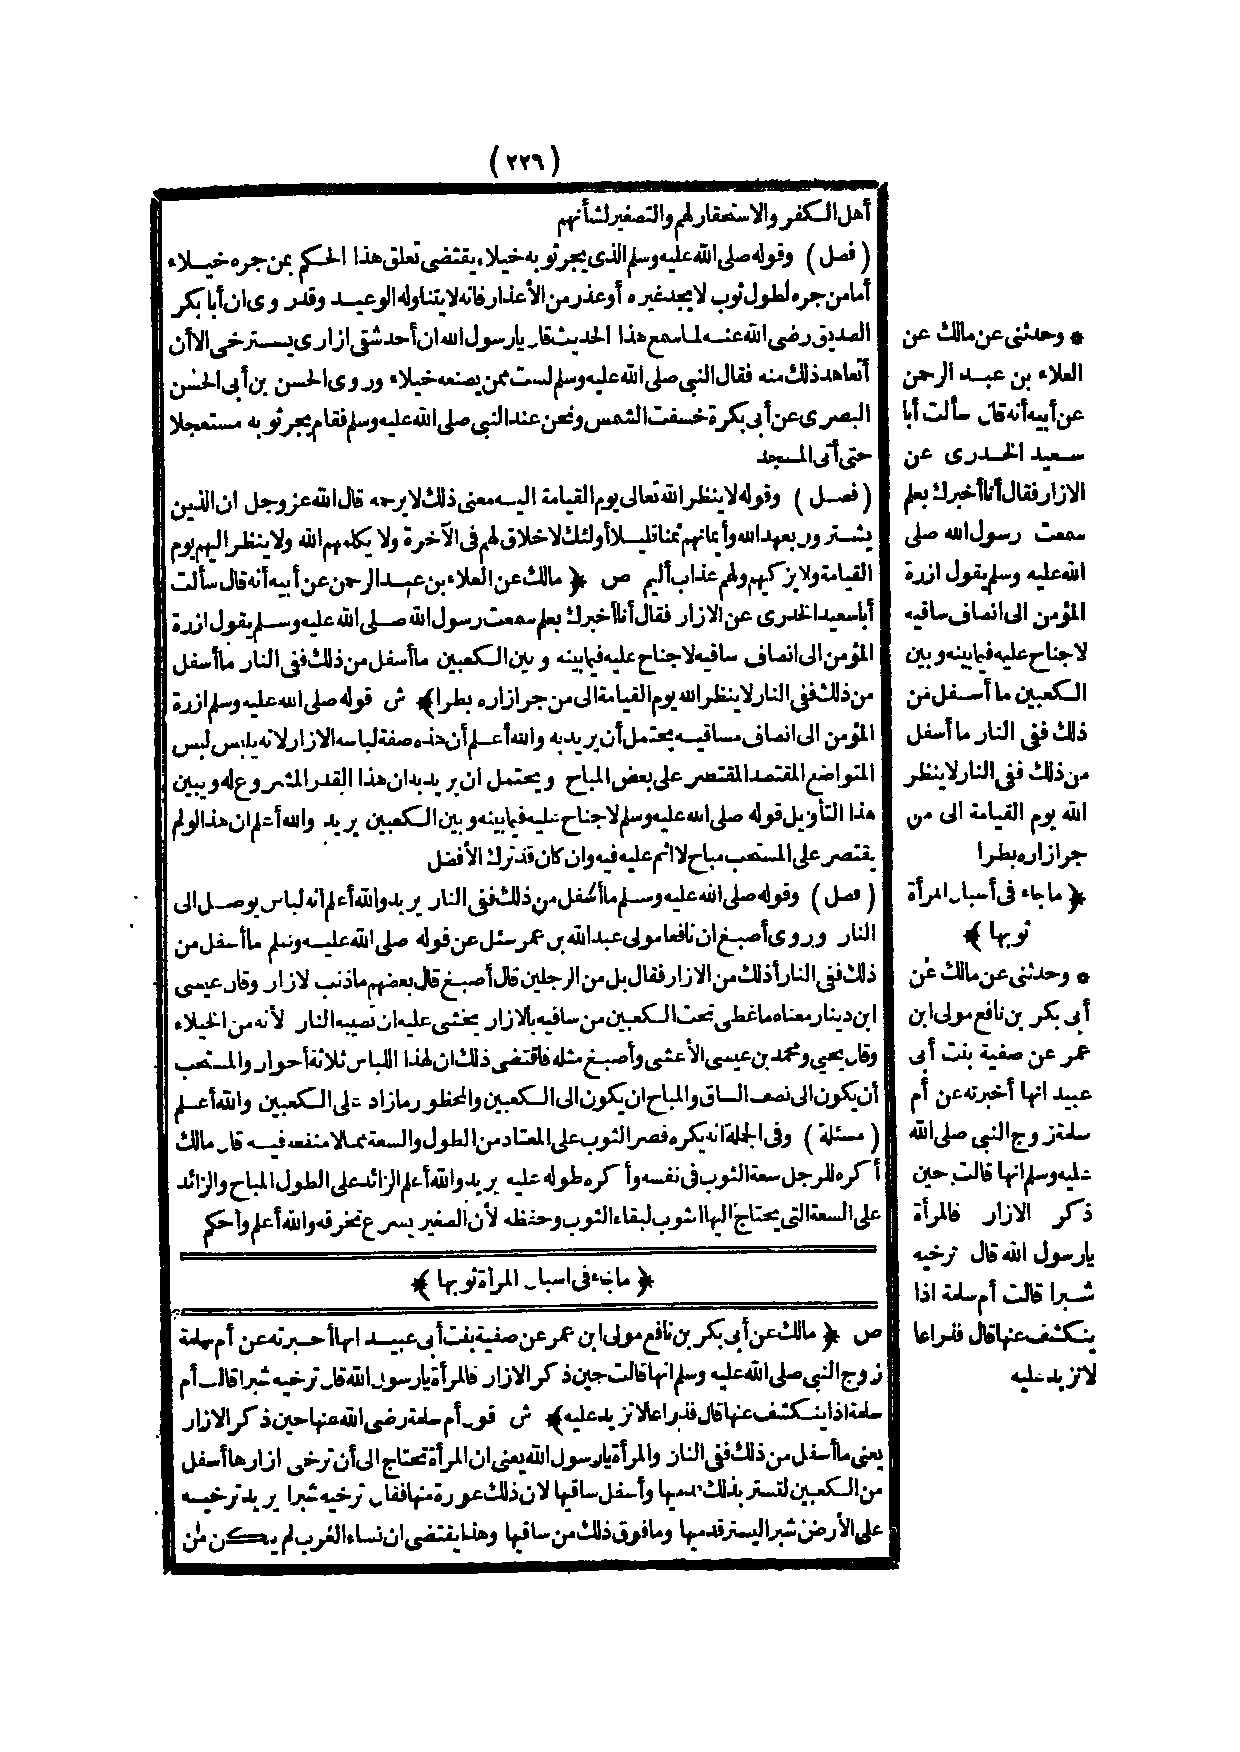 (٢٢٦)
أهل الكفر والاستحقار لهم والتصغير لشأنهم
(فصل) وقوله صلى الله عليه وسلم الذى يجر ثوبه خيلاء يقتضى تعلق هذا الحكم بمن جره خيلاء
أما من جره لطول ثوب لا يجد غيره أو عذر من الأعذار فانه لا يتناوله الوعيد وقد روى ان أبا بكر
الصديق رضى الله عنه لما سمع هذا الحديث قال يا رسول الله ان أحد شقى ازارى يسترخى الا أن
أتعاهد ذلك منه فقال النبى صلى الله عليه وسلم لست ممن يصنعه خيلاء وروى الحسن بن أبى الحسن
البصرى عن أبى بكرة خسفت الشمس ونحن عند النبى صلى الله عليه وسلم فقام يجر ثوبه مستعجلا
حتى أتى المسجد
(فصل) وقوله لا ينظر الله تعالى يوم القيامة اليه معنى ذلك لا يرحمه قال الله عز وجل ان الذين
يشترون بعهد الله وأيمانهم ثمنا قليلا أولئك لا خلاق لهم فى الآخرة ولا يكلمهم الله ولا ينظر اليهم يوم
القيامة ولا يزكيهم ولهم عذاب أليم ص ﴿ مالك عن العلاء بن عبد الرحمن عن أبيه أنه قال سألت
أبا سعيد الخدرى عن الازار فقال أنا أخبرك بعلم سمعت رسول الله صلى الله عليه وسلم يقول ازرة
المؤمن الى انصاف ساقيه لا جناح عليه فيما بينه وبين الكعبين ما أسفل من ذلك ففى النار ما أسفل
من ذلك ففى النار لا ينظر الله يوم القيامة الى من جر ازاره بطرا ﴾ ش قوله صلى الله عليه وسلم ازرة
المؤمن الى انصاف ساقيه يحتمل أن يريد به والله أعلم أن هذه صفة لباسه الازار لانه يلبس لبس
المتواضع المقتصد المقتصر على بعض المباح ويحتمل ان يريد بان هذا القدر المشروع له ويبين
هذا التأويل قوله صلى الله عليه وسلم لا جناح عليه فيما بينه وبين الكعبين يريد والله أعلم ان هذا لو لم
يقتصر على المستحب مباح لا اثم عليه فيه وان كان قد ترك الأفضل
(فصل) وقوله صلى الله عليه وسلم ما أسفل من ذلك ففى النار يريد والله أعلم انه لباس يوصل الى
النار وروى أصبغ ان نافعا مولى عبد الله بن عمر سئل عن قوله صلى الله عليه وسلم ما أسفل من
ذلك ففى النار أذلك من الازار فقال بل من الرجلين قال أصبغ قال بعضهم ما ذنب لازار وقال عيسى
ابن دينار معناه ما غطى تحت الكعبين من ساقيه بالازار يخشى عليه ان تصيبه النار لأنه من الخيلاء
وقال يحيى ومحمد بن عيسى الأعشى وأصبغ مثله فاقتضى ذلك ان لهذا اللباس ثلاثة أحوال والمستحب
أن يكون الى نصف الساق والمباح ان يكون الى الكعبين والمحظور ما زاد على الكعبين والله أعلم
(مسئلة) وفى الجملة انه يكره قصر الثوب على المعتاد من الطول والسعة مما لا منفعه فيه قال مالك
أكره للرجل سعة الثوب فى نفسه وأكره طوله عليه يريد والله أعلم الزائد على الطول المباح والزائد
على السعة التى يحتاج اليها الثوب لبقاء الثوب وحفظه لأن الصغير يسرع تخرقه والله أعلم وأحكم
﴿ ما جاء فى اسبال المرأة ثوبها ﴾
ص ﴿ مالك عن أبى بكر بن نافع مولى ابن عمر عن صفية بنت أبى عبيد انها أخبرته عن أم سلمة
زوج النبى صلى الله عليه وسلم انها قالت حين ذكر الازار فالمرأة يا رسول الله قال ترخيه شبرا قالت أم
سلمة اذا ينكشف عنها قال فذراعا لا تزيد عليه ﴾ ش قول أم سلمة رضى الله عنها حين ذكر الازار
يعنى ما أسفل من ذلك ففى النار والمرأة يا رسول الله يعنى ان المرأة تحتاج الى أن ترخى ازارها أسفل
من الكعبين لتستر بذلك قدميها وأسفل ساقيها لان ذلك عورة منها فقال ترخيه شبرا يريد ترخيه
على الأرض شبرا ليستر قدميها وما فوق ذلك من ساقيها وهذا يقتضى ان نساء العرب لم يكن من
* وحدثنى عن مالك عن
العلاء بن عبد الرحمن
عن أبيه أنه قال سألت أبا
سعيد الخدرى عن
الازار فقال أنا أخبرك بعلم
سمعت رسول الله صلى
الله عليه وسلم يقول ازرة
المؤمن الى انصاف ساقيه
لا جناح عليه فيما بينه وبين
الكعبين ما أسفل من
ذلك ففى النار ما أسفل
من ذلك ففى النار لا ينظر
الله يوم القيامة الى من
جر ازاره بطرا
﴿ ما جاء فى أسبال المرأة
ثوبها ﴾
* وحدثنى عن مالك عن
أبى بكر بن نافع مولى ابن
عمر عن صفية بنت أبى
عبيد انها أخبرته عن أم
سلمة زوج النبى صلى الله
عليه وسلم انها قالت حين
ذكر الازار فالمرأة
يا رسول الله قال ترخيه
شبرا قالت أم سلمة اذا
ينكشف عنها قال فذراعا
لا تزيد عليه